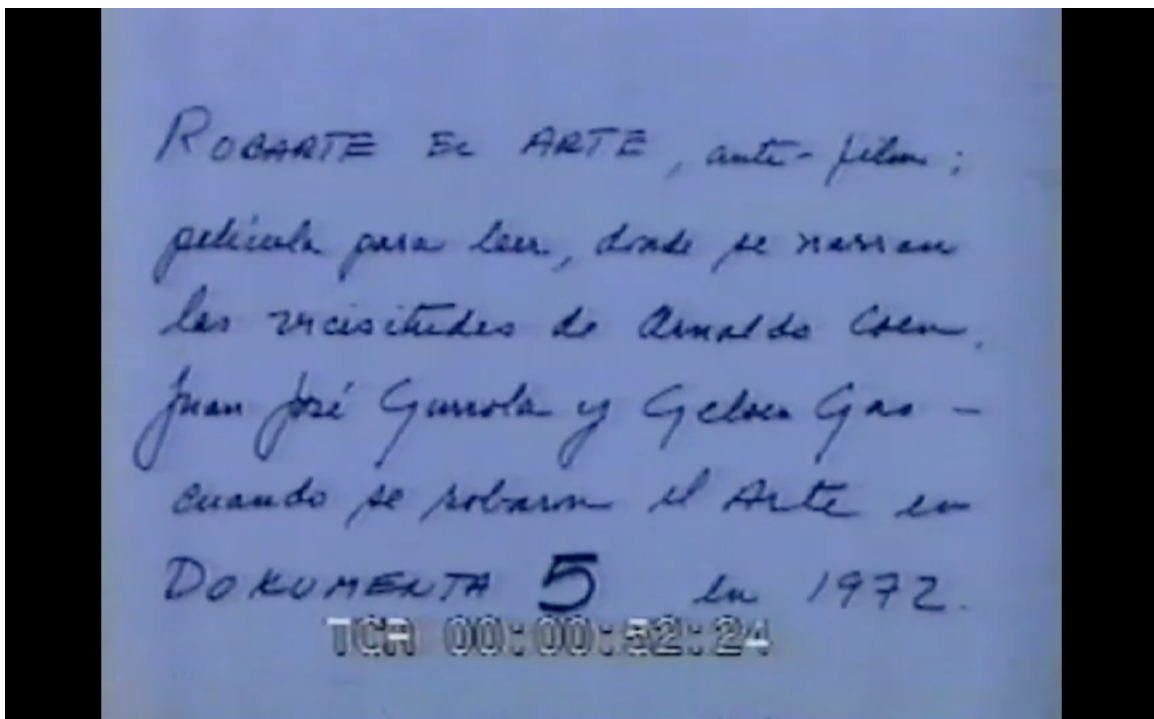 ROBARTE EL ARTE, anti-film;
película para leer, donde se narran
las vicisitudes de Arnaldo Coen,
Juan José Gurrola y Gelsen Gas -
cuando se robaron el Arte en
DOKUMENTA 5 en 1972.
TCR 00:00:52:24